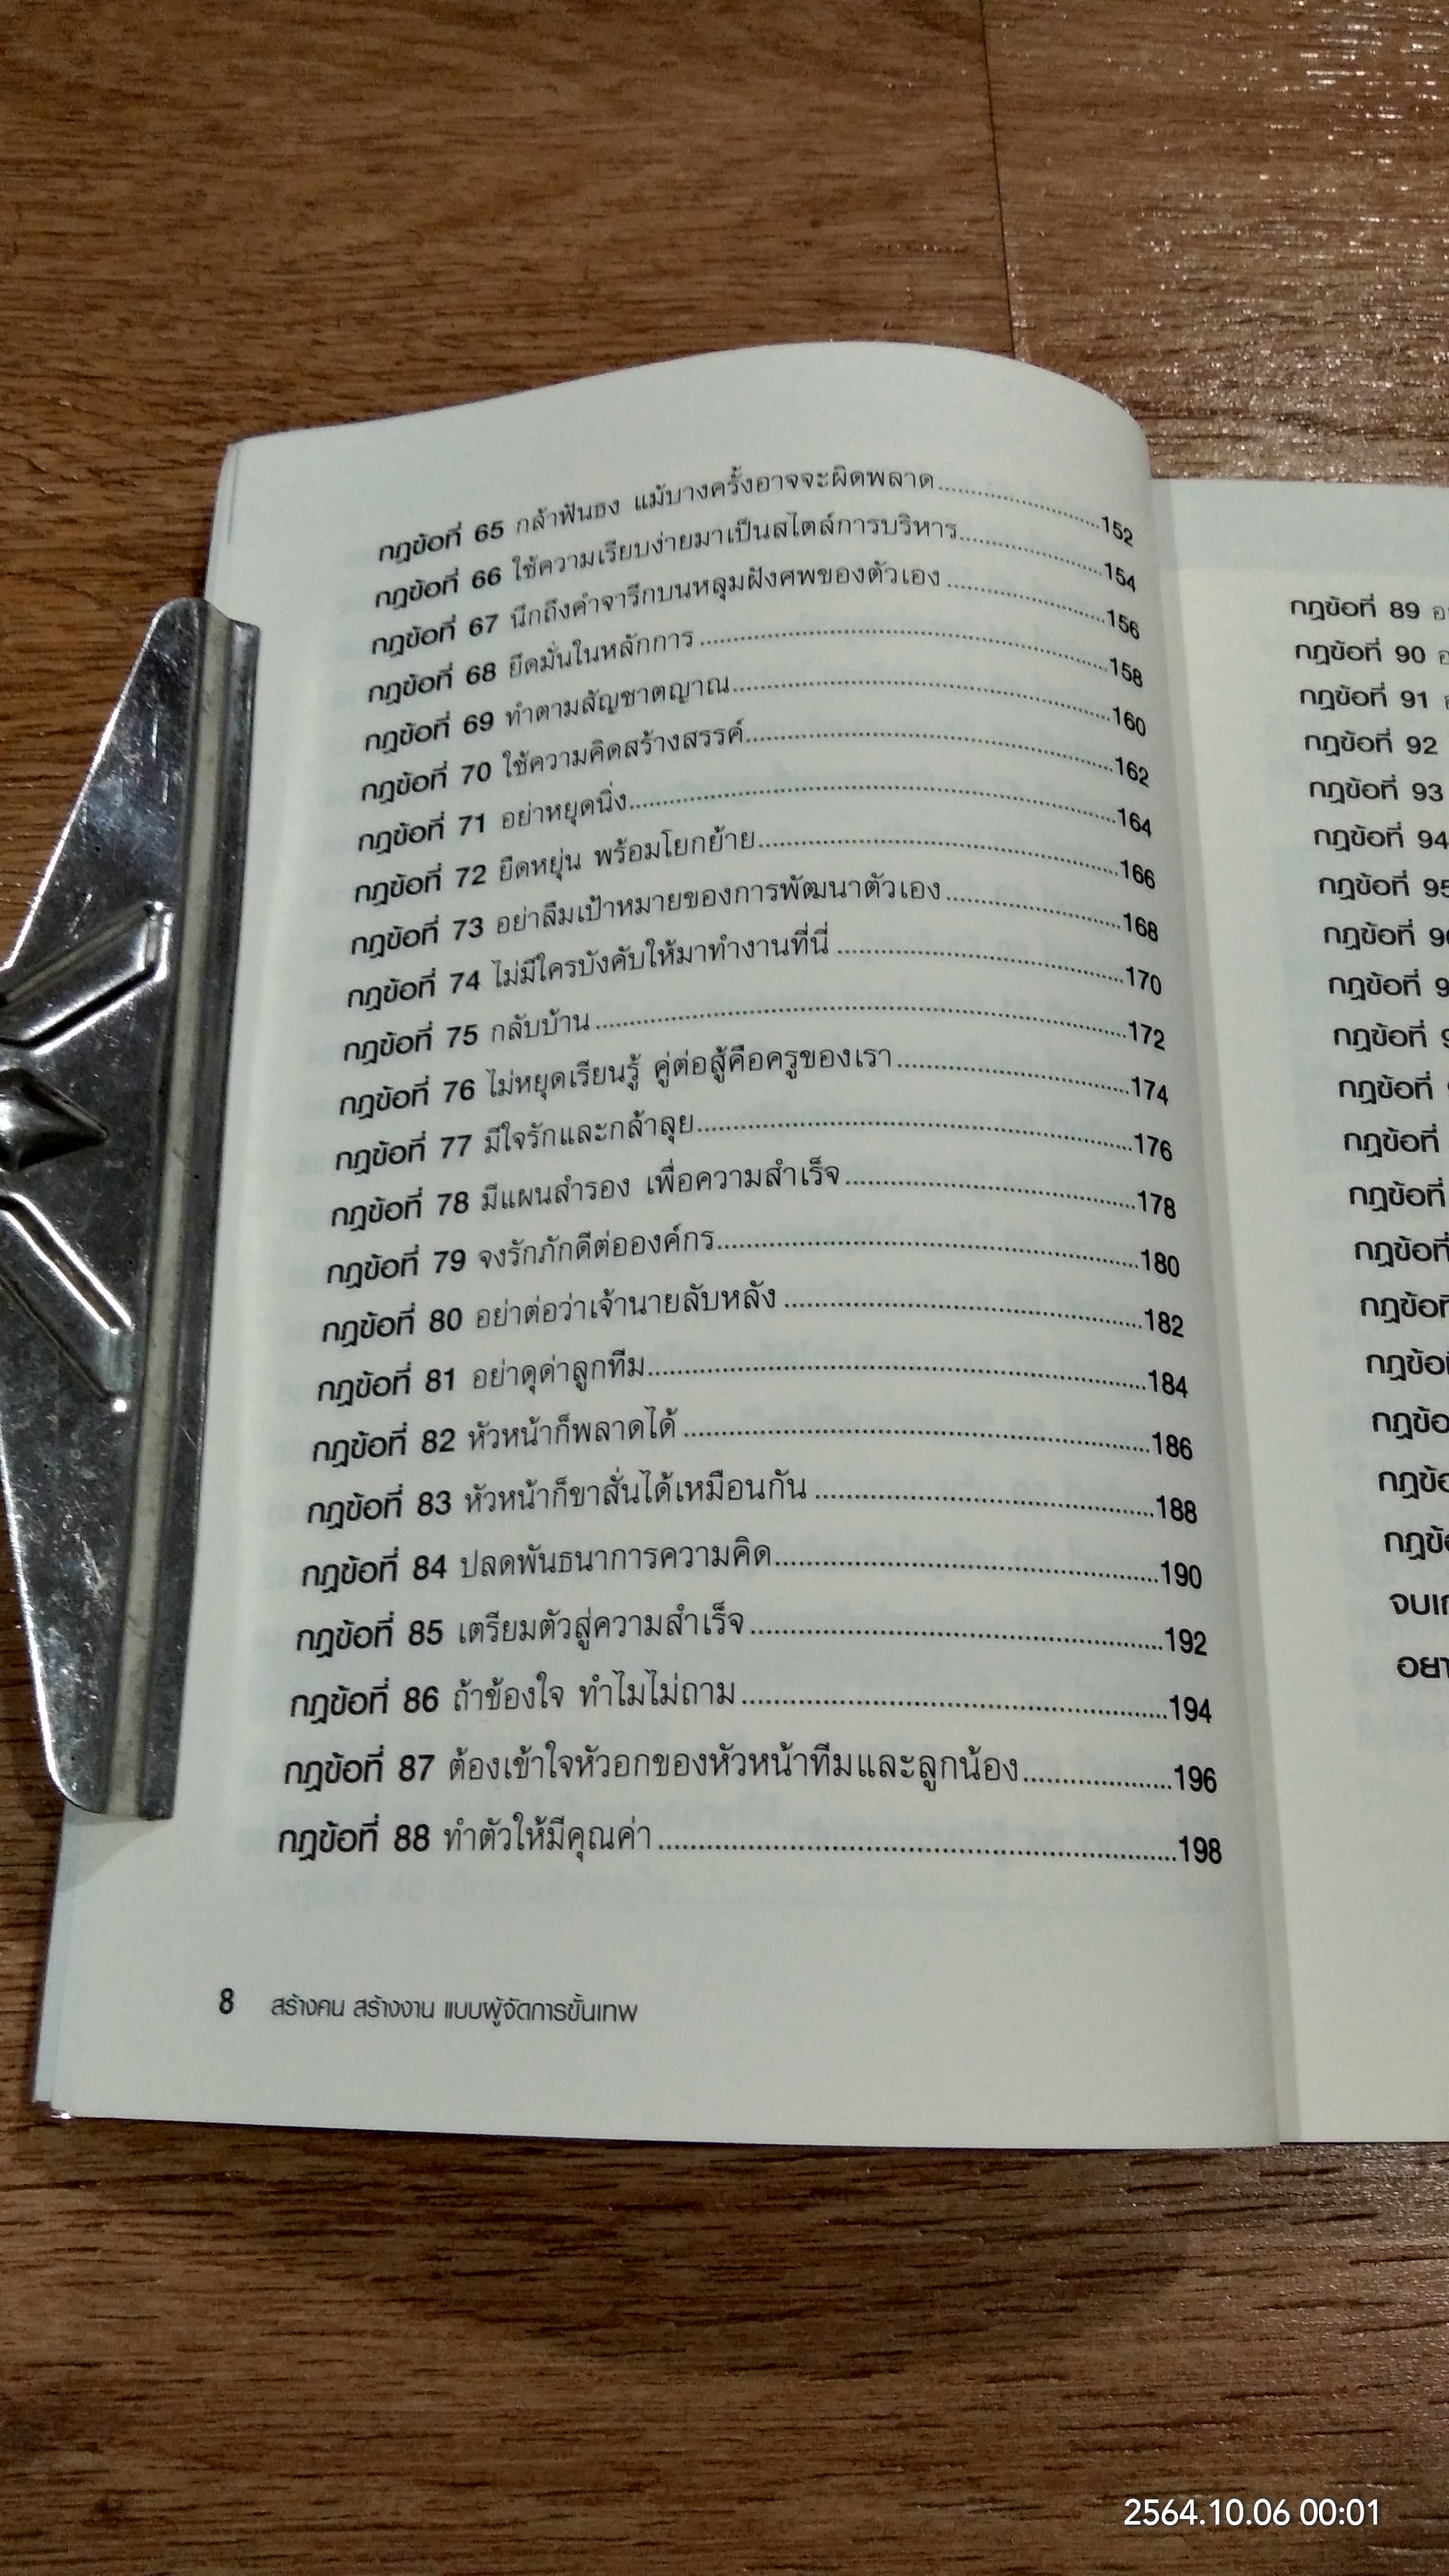 กฎข้อที่ 65 กล้าฟันธง แม้บางครั้งอาจจะผิดพลาด........................152
กฎข้อที่ 66 ใช้ความเรียบง่ายมาเป็นสไตล์การบริหาร........................154
กฎข้อที่ 67 นึกถึงคำจารึกบนหลุมฝังศพของตัวเอง ........................156
กฎข้อที่ 68 ยึดมั่นในหลักการ ........................158
กฎข้อที่ 69 ทำตามสัญชาตญาณ........................160
กฎข้อที่ 70 ใช้ความคิดสร้างสรรค์........................162
กฎข้อที่ 71 อย่าหยุดนิ่ง........................164
กฎข้อที่ 72 ยืดหยุ่น พร้อมโยกย้าย........................166
กฎข้อที่ 73 อย่าลืมเป้าหมายของการพัฒนาตัวเอง........................168
กฎข้อที่ 74 ไม่มีใครบังคับให้มาทำงานที่นี่ ........................170
กฎข้อที่ 75 กลับบ้าน ........................172
กฎข้อที่ 76 ไม่หยุดเรียนรู้ คู่ต่อสู้คือครูของเรา........................174
กฎข้อที่ 77 มีใจรักและกล้าลุย........................176
กฎข้อที่ 78 มีแผนสำรอง เพื่อความสำเร็จ........................178
กฎข้อที่ 79 จงรักภักดีต่อองค์กร........................180
กฎข้อที่ 80 อย่าต่อว่าเจ้านายลับหลัง ........................182
กฎข้อที่ 81 อย่าดุด่าลูกทีม........................184
กฎข้อที่ 82 หัวหน้าก็พลาดได้ ........................186
กฎข้อที่ 83 หัวหน้าก็ขาสั่นได้เหมือนกัน ........................188
กฎข้อที่ 84 ปลดพันธนาการความคิด........................190
กฎข้อที่ 85 เตรียมตัวสู่ความสำเร็จ ........................192
กฎข้อที่ 86 ถ้าข้องใจ ทำไมไม่ถาม........................194
กฎข้อที่ 87 ต้องเข้าใจหัวอกของหัวหน้าทีมและลูกน้อง........................196
กฎข้อที่ 88 ทำตัวให้มีคุณค่า........................198
8 สร้างคน สร้างงาน แบบผู้จัดการขั้นเทพ
กฎข้อที่ 89
กฎข้อที่ 90
กฎข้อที่ 91
กฎข้อที่ 92
กฎข้อที่ 93
กฎข้อที่ 94
กฎข้อที่ 95
กฎข้อที่
กฎข้อที่
กฎข้อที่
กฎข้อที่
กฎข้อที่
กฎข้อที่
กฎข้อที่
2564.10.06 00:01